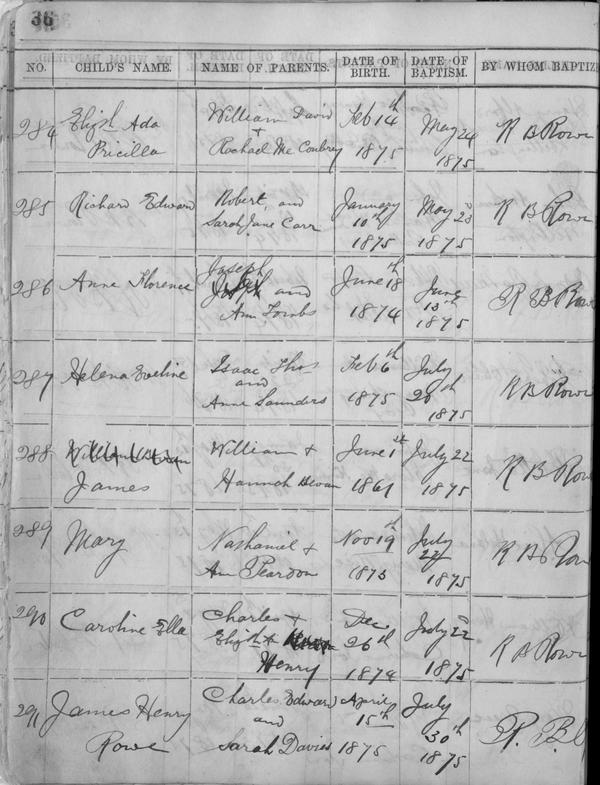 36
NO. CHILD'S NAME. NAME OF PARENTS. DATE OF BIRTH. DATE OF BAPTISM. BY WHOM BAPTIZ
284 Elizth Ada William David Feb 14th May 24 R B Rowe
Pricilla + Rachael Mc Conbrey 1875 1875
285 Richard Edward Robert and January May 23 R B Rowe
Sarah Jane Carr 10th 1875 1875
286 Anne Florence Joseph and June 18th June R B Rowe
Ann Toimbs 1874 13th 1875
287 Helena Eveline Isaac Thos Feb 6th July R B Rowe
and Anne Saunders 1875 20th 1875
288 James William + June 1st July 22 R B Rowe
Hannah Bevan 1861 1875
289 Mary Nathaniel + Nov 19th July R B Row
Ann Peardon 1873 22 1875
290 Caroline Ella Charles + Dec July 22 R B Rowe
Elizth Henry 26th 1874 1875
291 James Henry Charles Edward April July R. B.
Rowe and Sarah Davies 15th 1875 30th 1875